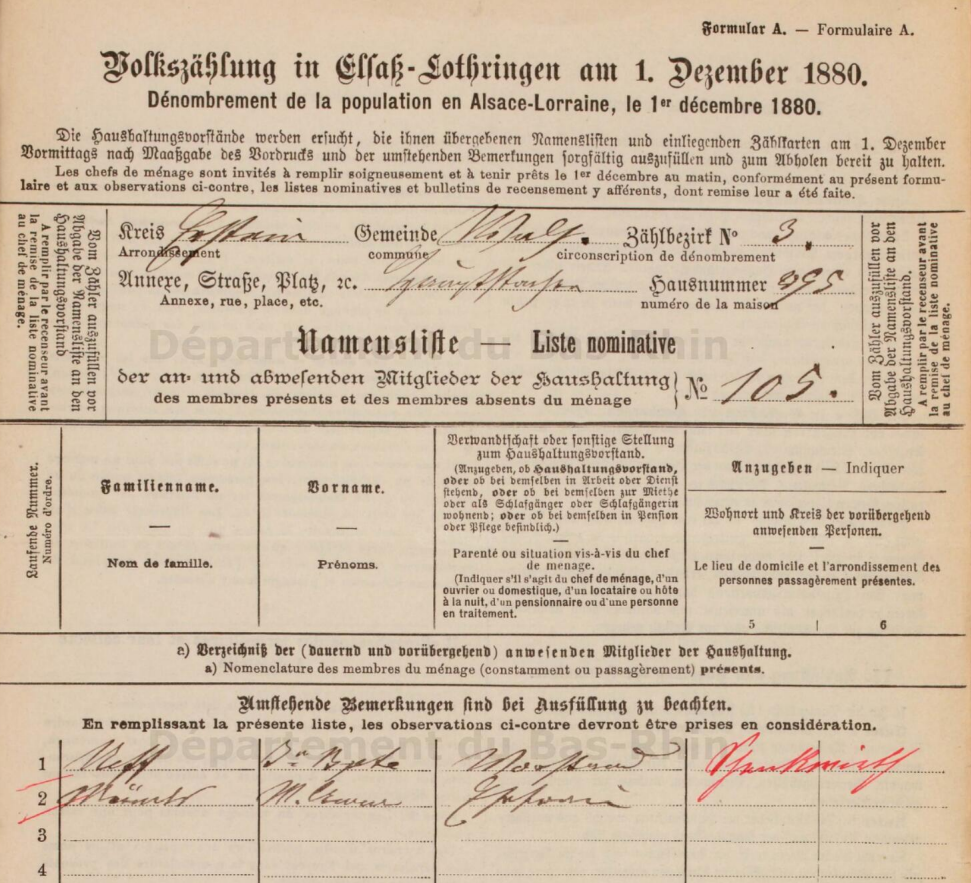 Formular A. — Formulaire A.
Volkszählung in Elsaß-Lothringen am 1. Dezember 1880.
Dénombrement de la population en Alsace-Lorraine, le 1er décembre 1880.
Die Haushaltungsvorstände werden ersucht, die ihnen übergebenen Namenslisten und einliegenden Zählkarten am 1. Dezember
Vormittags nach Maaßgabe des Vordrucks und der umstehenden Bemerkungen sorgfältig auszufüllen und zum Abholen bereit zu halten.
Les chefs de ménage sont invités à remplir soigneusement et à tenir prêts le 1er décembre au matin, conformément au présent formu-
laire et aux observations ci-contre, les listes nominatives et bulletins de recensement y afférents, dont remise leur a été faite.
Vom Zähler auszufüllen vor
Abgabe der Namensliste an den
Haushaltungsvorstand
A remplir par le recenseur avant
la remise de la liste nominative
au chef de ménage.
Kreis Erstein Gemeinde Zählbezirk No 3.
Arrondissement commune circonscription de dénombrement
Annexe, Straße, Platz, ꝛc. Hauptstrasse Hausnummer 395
Annexe, rue, place, etc. numéro de la maison
Département du Bas-Rhin
Namensliste — Liste nominative
der an- und abwesenden Mitglieder der Haushaltung
des membres présents et des membres absents du ménage
No 105.
Vom Zähler auszufüllen vor
Abgabe der Namensliste an den
Haushaltungsvorstand.
A remplir par le recenseur avant
la remise de la liste nominative
au chef de ménage.
Laufende Nummer.
Numéro d'ordre.
Familienname.
—
Nom de famille.
Vorname.
—
Prénoms.
Verwandtschaft oder sonstige Stellung
zum Haushaltungsvorstand.
(Anzugeben, ob Haushaltungsvorstand,
oder ob bei demselben in Arbeit oder Dienst
stehend, oder ob bei demselben zur Miethe
oder als Schlafgänger oder Schlafgängerin
wohnend; oder ob bei demselben in Pension
oder Pflege befindlich.)
—
Parenté ou situation vis-à-vis du chef
de menage.
(Indiquer s'il s'agit du chef de ménage, d'un
ouvrier ou domestique, d'un locataire ou hôte
à la nuit, d'un pensionnaire ou d'une personne
en traitement.
Anzugeben — Indiquer
Wohnort und Kreis der vorübergehend
anwesenden Personen.
—
Le lieu de domicile et l'arrondissement des
personnes passagèrement présentes.
5 6
a) Verzeichniß der (dauernd und vorübergehend) anwesenden Mitglieder der Haushaltung.
a) Nomenclature des membres du ménage (constamment ou passagèrement) présents.
Umstehende Bemerkungen sind bei Ausfüllung zu beachten.
En remplissant la présente liste, les observations ci-contre devront être prises en considération.
Département du Bas-Rhin
1 Neff Vorstand Schenkwirth
2 Ehefrau
3
4